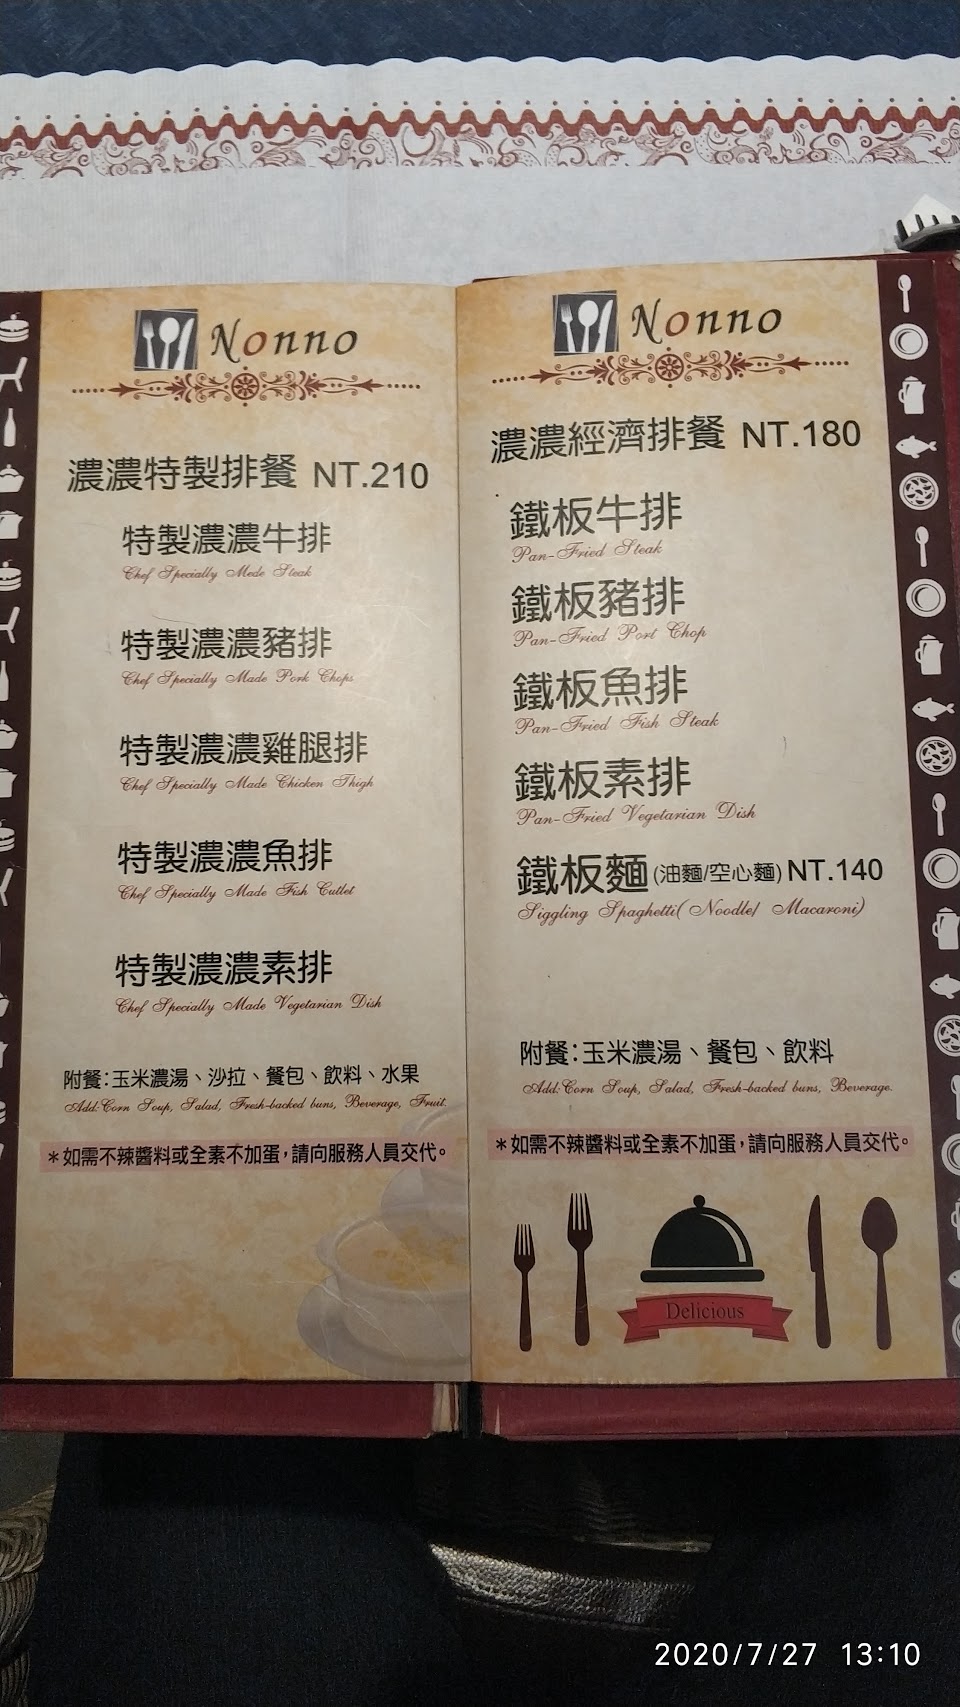 Nonno
濃濃特製排餐 NT.210
特製濃濃牛排
Chef Specially Mede Steak
特製濃濃豬排
Chef Specially Made Pork Chops
特製濃濃雞腿排
Chef Specially Made Chicken Thigh
特製濃濃魚排
Chef Specially Made Fish Cutlet
特製濃濃素排
Chef Specially Made Vegetarian Dish
附餐:玉米濃湯、沙拉、餐包、飲料、水果
Add:Corn Soup, Salad, Fresh-backed buns, Beverage, Fruit.
*如需不辣醬料或全素不加蛋,請向服務人員交代。
Nonno
濃濃經濟排餐 NT.180
鐵板牛排
Pan-Fried Steak
鐵板豬排
Pan-Fried Port Chop
鐵板魚排
Pan-Fried Fish Steak
鐵板素排
Pan-Fried Vegetarian Dish
鐵板麵(油麵/空心麵)NT.140
Siggling Spaghetti( Noodle/ Macaroni)
附餐:玉米濃湯、餐包、飲料
Add:Corn Soup, Salad, Fresh-backed buns, Beverage.
*如需不辣醬料或全素不加蛋,請向服務人員交代。
Delicious
2020/7/27 13:10